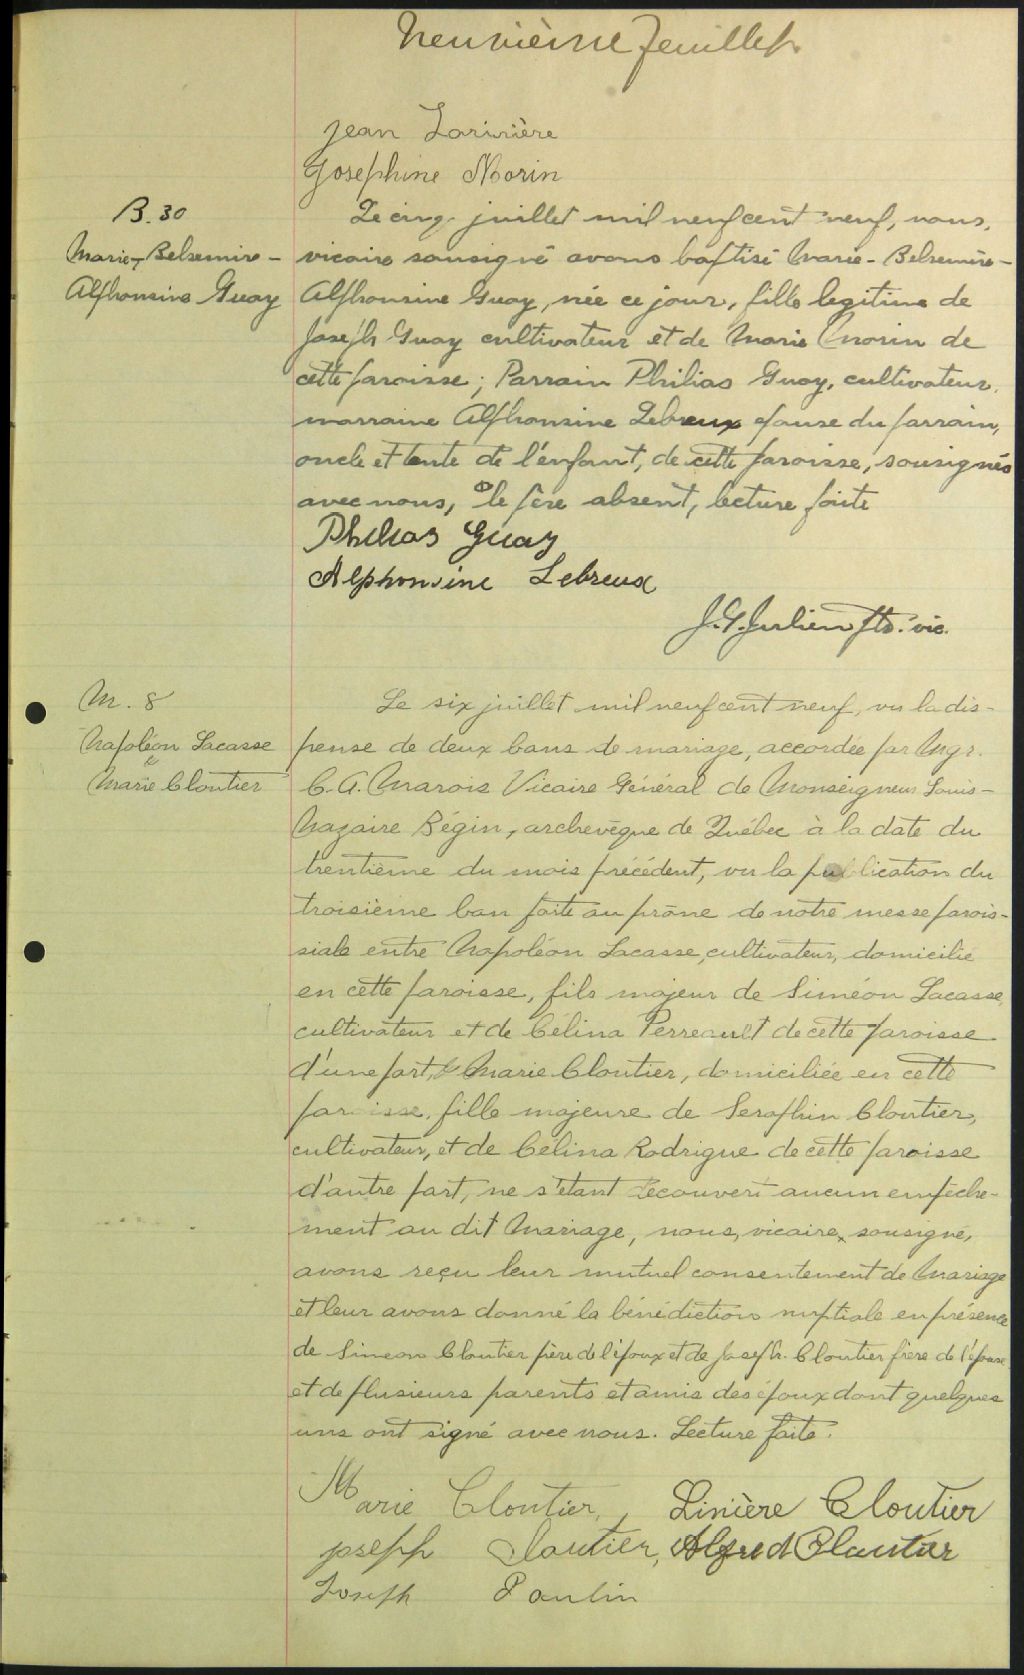 Neuvième feuillet
Jean Larivière
Josephine Morin
B. 30
Marie-Belzemire-
Alphonsine Guay
Le cinq juillet mil neuf cent neuf, nous,
vicaire sousigné avons baptisé Marie-Belzemire-
Alphonsine Guay, née ce jour, fille legitime de
Joseph Guay cultivateur et de Marie Morin de
cette paroisse; Parrain Philias Guay, cultivateur,
marraine Alphonsine Lebreux epouse du parrain,
oncle et tente de l'enfant, de cette paroisse, sousignés
avec nous, le père absent, lecture faite
Philias Guay
Alphonsine Lebreux
J.G. Julien ptre. vic.
M. 8
Napoléon Lacasse
&
Marie Cloutier
Le six juillet mil neuf cent neuf, vu la dis-
pense de deux bans de mariage, accordée par Mgr.
C. A. Marois Vicaire Général de Monseigneur Louis-
Nazaire Bégin, archevêque de Québec à la date du
trentième du mois précédent, vu la publication du
troisième ban faite au prône de notre messe parois-
siale entre Napoléon Lacasse, cultivateur, domicilié
en cette paroisse, fils majeur de Siméon Lacasse,
cultivateur et de Célina Perreault de cette paroisse
d'une part, & Marie Cloutier, domiciliée en cette
paroisse, fille majeure de Seraphin Cloutier,
cultivateur, et de Célina Rodrigue de cette paroisse
d'autre part, ne s'étant découvert aucun empêche-
ment au dit Mariage, nous, vicaire, sousigné,
avons reçu leur mutuel consentement de Mariage
et leur avons donné la bénédiction nuptiale en présence
de Simeon Cloutier père de l'époux et de Joseph Cloutier frère de l'épouse
et de plusieurs parents et amis des époux dont quelques
uns ont signé avec nous. Lecture faite.
Marie Cloutier, Linière Cloutier
Joseph Cloutier, Alfred Cloutier
Joseph Poulin